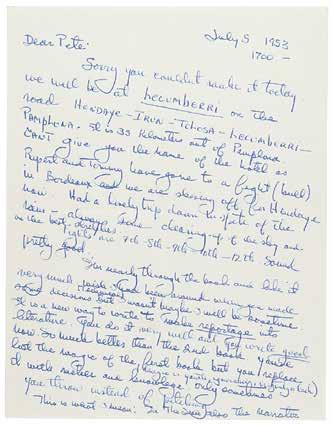 July 5 1953
1700.-
Dear Pete:
Sorry you couldn't make it today
we will be at LECUMBERRI on the
road HENDAYE-IRUN-TOLOSA-LECUMBERRI-
PAMPLONA. It is 33 kilometers out of Pamplona
CAN'T give you the name of the hotel as
Rupert and Tommy have gone to a fight (bull)
in Bordeaux and we are shoving off for Hendaye
now. Had a lovely trip down in spite of the
rain always some clearing up of the sky and
in the best
Fights are 7th-8th-9th-10th-12th Sound
pretty good
I'm nearly through the book and like it
very much wish I had been around when you made
some decisions but wasn't maybe I will be sometime
It is a new way to write to make reportage
literature. You do it very well and get
now so much better than the 2nd book you've
lost the magic of the first book but you replace
it with and knowledge. Only sometimes
you throw instead of pitching
This is what I mean: In the also the narrator